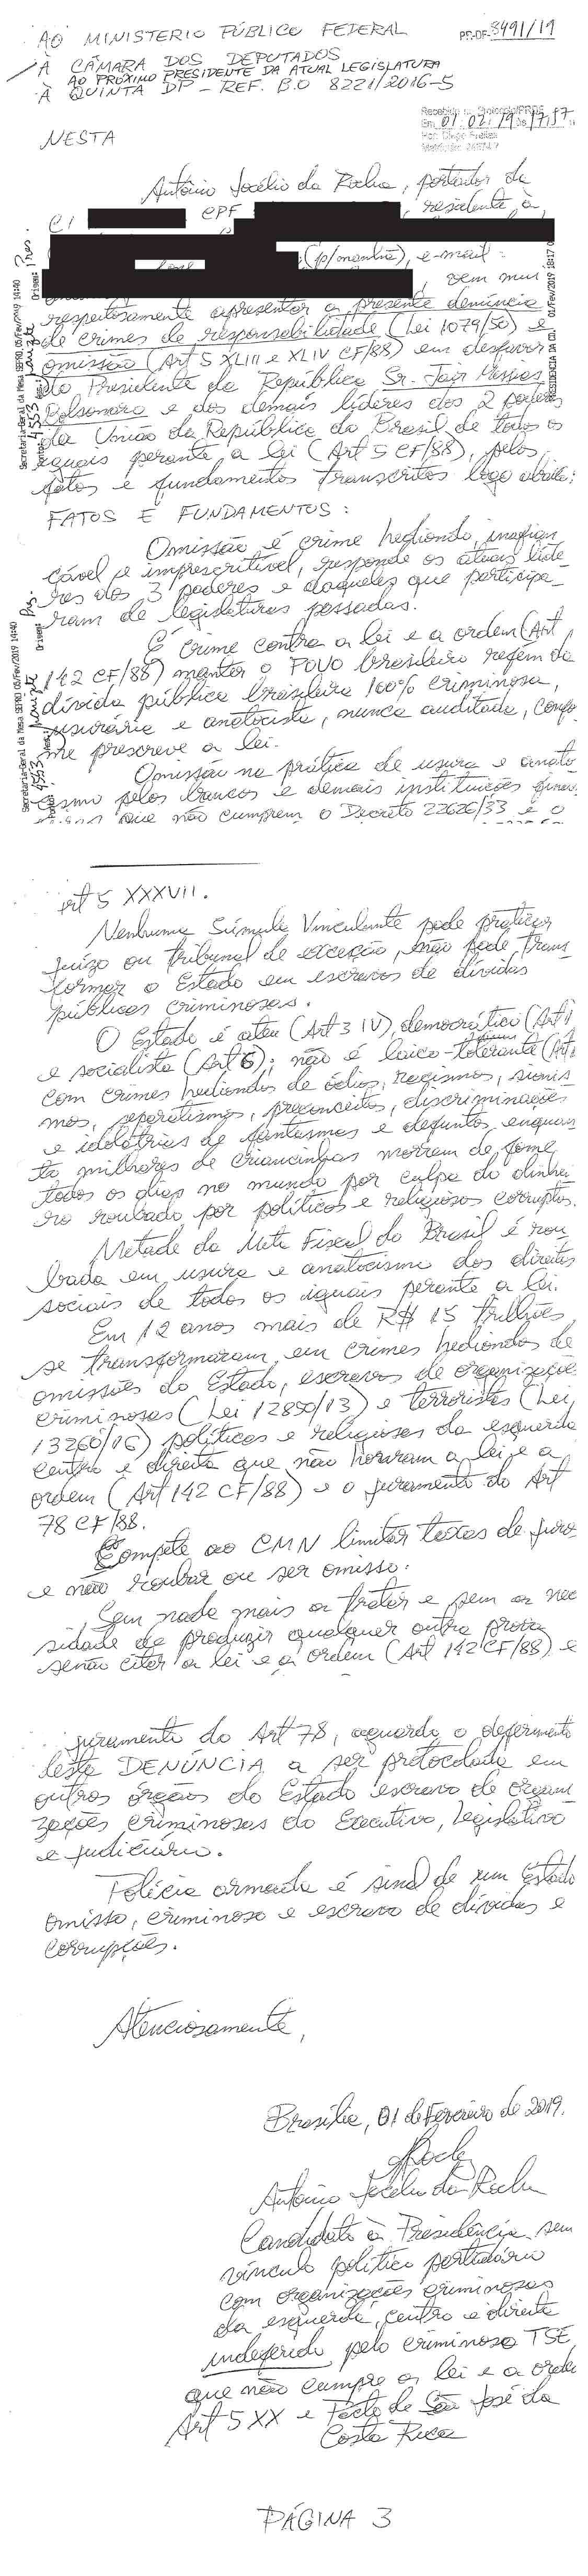 AO MINISTERIO PÚBLICO FEDERAL
PR-DF-3491/19
À CÂMARA DOS DEPUTADOS
AO PRÓXIMO PRESIDENTE DA ATUAL LEGISLATURA
À QUINTA DP - REF. B.O 8221/2016-5
Em 01/02/19 às 17:57
NESTA
Antônio Jocélio da Rocha, portador da
CI CPF , residente à
(p/manhã), e-mail:
vem mui
respeitosamente apresentar a presente denúncia
de crimes de responsabilidade (Lei 1079/50) e
omissão (Art 5 XLIII e XLIV CF/88) em desfavor
do Presidente da República Sr. Jair Messias
Bolsonaro e dos demais líderes dos 2 poderes
da União da República do Brasil de todos os
iguais perante a lei (Art 5 CF/88), pelos
fatos e fundamentos transcritos logo abaixo:
Secretaria-Geral da Mesa SEPRO 05/Fev/2019 14:40
Ponto: 4553 Ass.: Origem: Pres.
PRESIDENCIA DA CD. 01/Fev/2019 18:17
FATOS E FUNDAMENTOS:
Omissão é crime hediondo, inafian
çável e imprescritível, responde os atuais líde-
res dos 3 poderes e daqueles que participa-
ram de legislaturas passadas.
É crime contra a lei e a ordem (Art
142 CF/88) manter o POVO brasileiro refém da
dívida pública brasileira 100% criminosa,
usurária e anatocista, nunca auditada, confo
me prescreve a lei.
Omissão na prática de usura e anato
cismo pelos bancos e demais instituições finan
que não cumprem o Decreto 22626/33 e o
Secretaria-Geral da Mesa SEPRO 05/Fev/2019 14:40
Ponto: 4553 Ass.: Origem: Pres.
Art 5 XXXVII.
Nenhuma Súmula Vinculante pode praticar
juízo ou tribunal de exceção, não pode trans
formar o Estado em escravos de dívidas
públicas criminosas.
O Estado é ateu (Art 3 IV), democrático (Art 1
e socialista (Art 6); não é laico-tolerante (Art
com crimes hediondos de ódios, racismos, sionis
mos, separatismos, preconceitos, discriminações
e idolatrias de fantasmas e defuntos, enquan
to milhares de criancinhas morrem de fome
todos os dias no mundo por culpa do dinhei
ro roubado por políticos e religiosos corruptos.
Metade da Meta Fiscal do Brasil é rou
bada em usura e anatocismo dos direitos
sociais de todos os iguais perante a lei.
Em 12 anos mais de R$ 15 trilhões
se transformaram em crimes hediondos de
omissões do Estado, escravos de organizaçõe
criminosas (Lei 12850/13) e terroristas (Lei
13260/16) políticas e religiosas da esquerda
centro e direita que não honram a lei e a
ordem (Art 142 CF/88) e o juramento do Art
78 CF/88.
Compete ao CMN limitar taxas de juro
e não roubar ou ser omisso.
Sem nada mais a tratar e sem a nec
sidade de produzir qualquer outra prova
senão citar a lei e a ordem (Art 142 CF/88) e
juramento do Art 78, aguardo o deferimento
desta DENÚNCIA a ser protocolada em
outros órgãos do Estado escravo de organi
zações criminosas do Executivo, Legislativo
e judiciário.
Polícia armada é sinal de um Estado
omisso, criminoso e escravo de dívidas e
corrupções.
Atenciosamente,
Brasília, 01 de Fevereiro de 2019.
Antônio Jocélio da Rocha
Candidato à Presidência sem
vínculo político partidário
com organizações criminosas
da esquerda, centro e direita
indeferido pelo criminoso TSE
que não cumpre a lei e a orde
Art 5 XX e Pacto de São José da
Costa Rica
PÁGINA 3